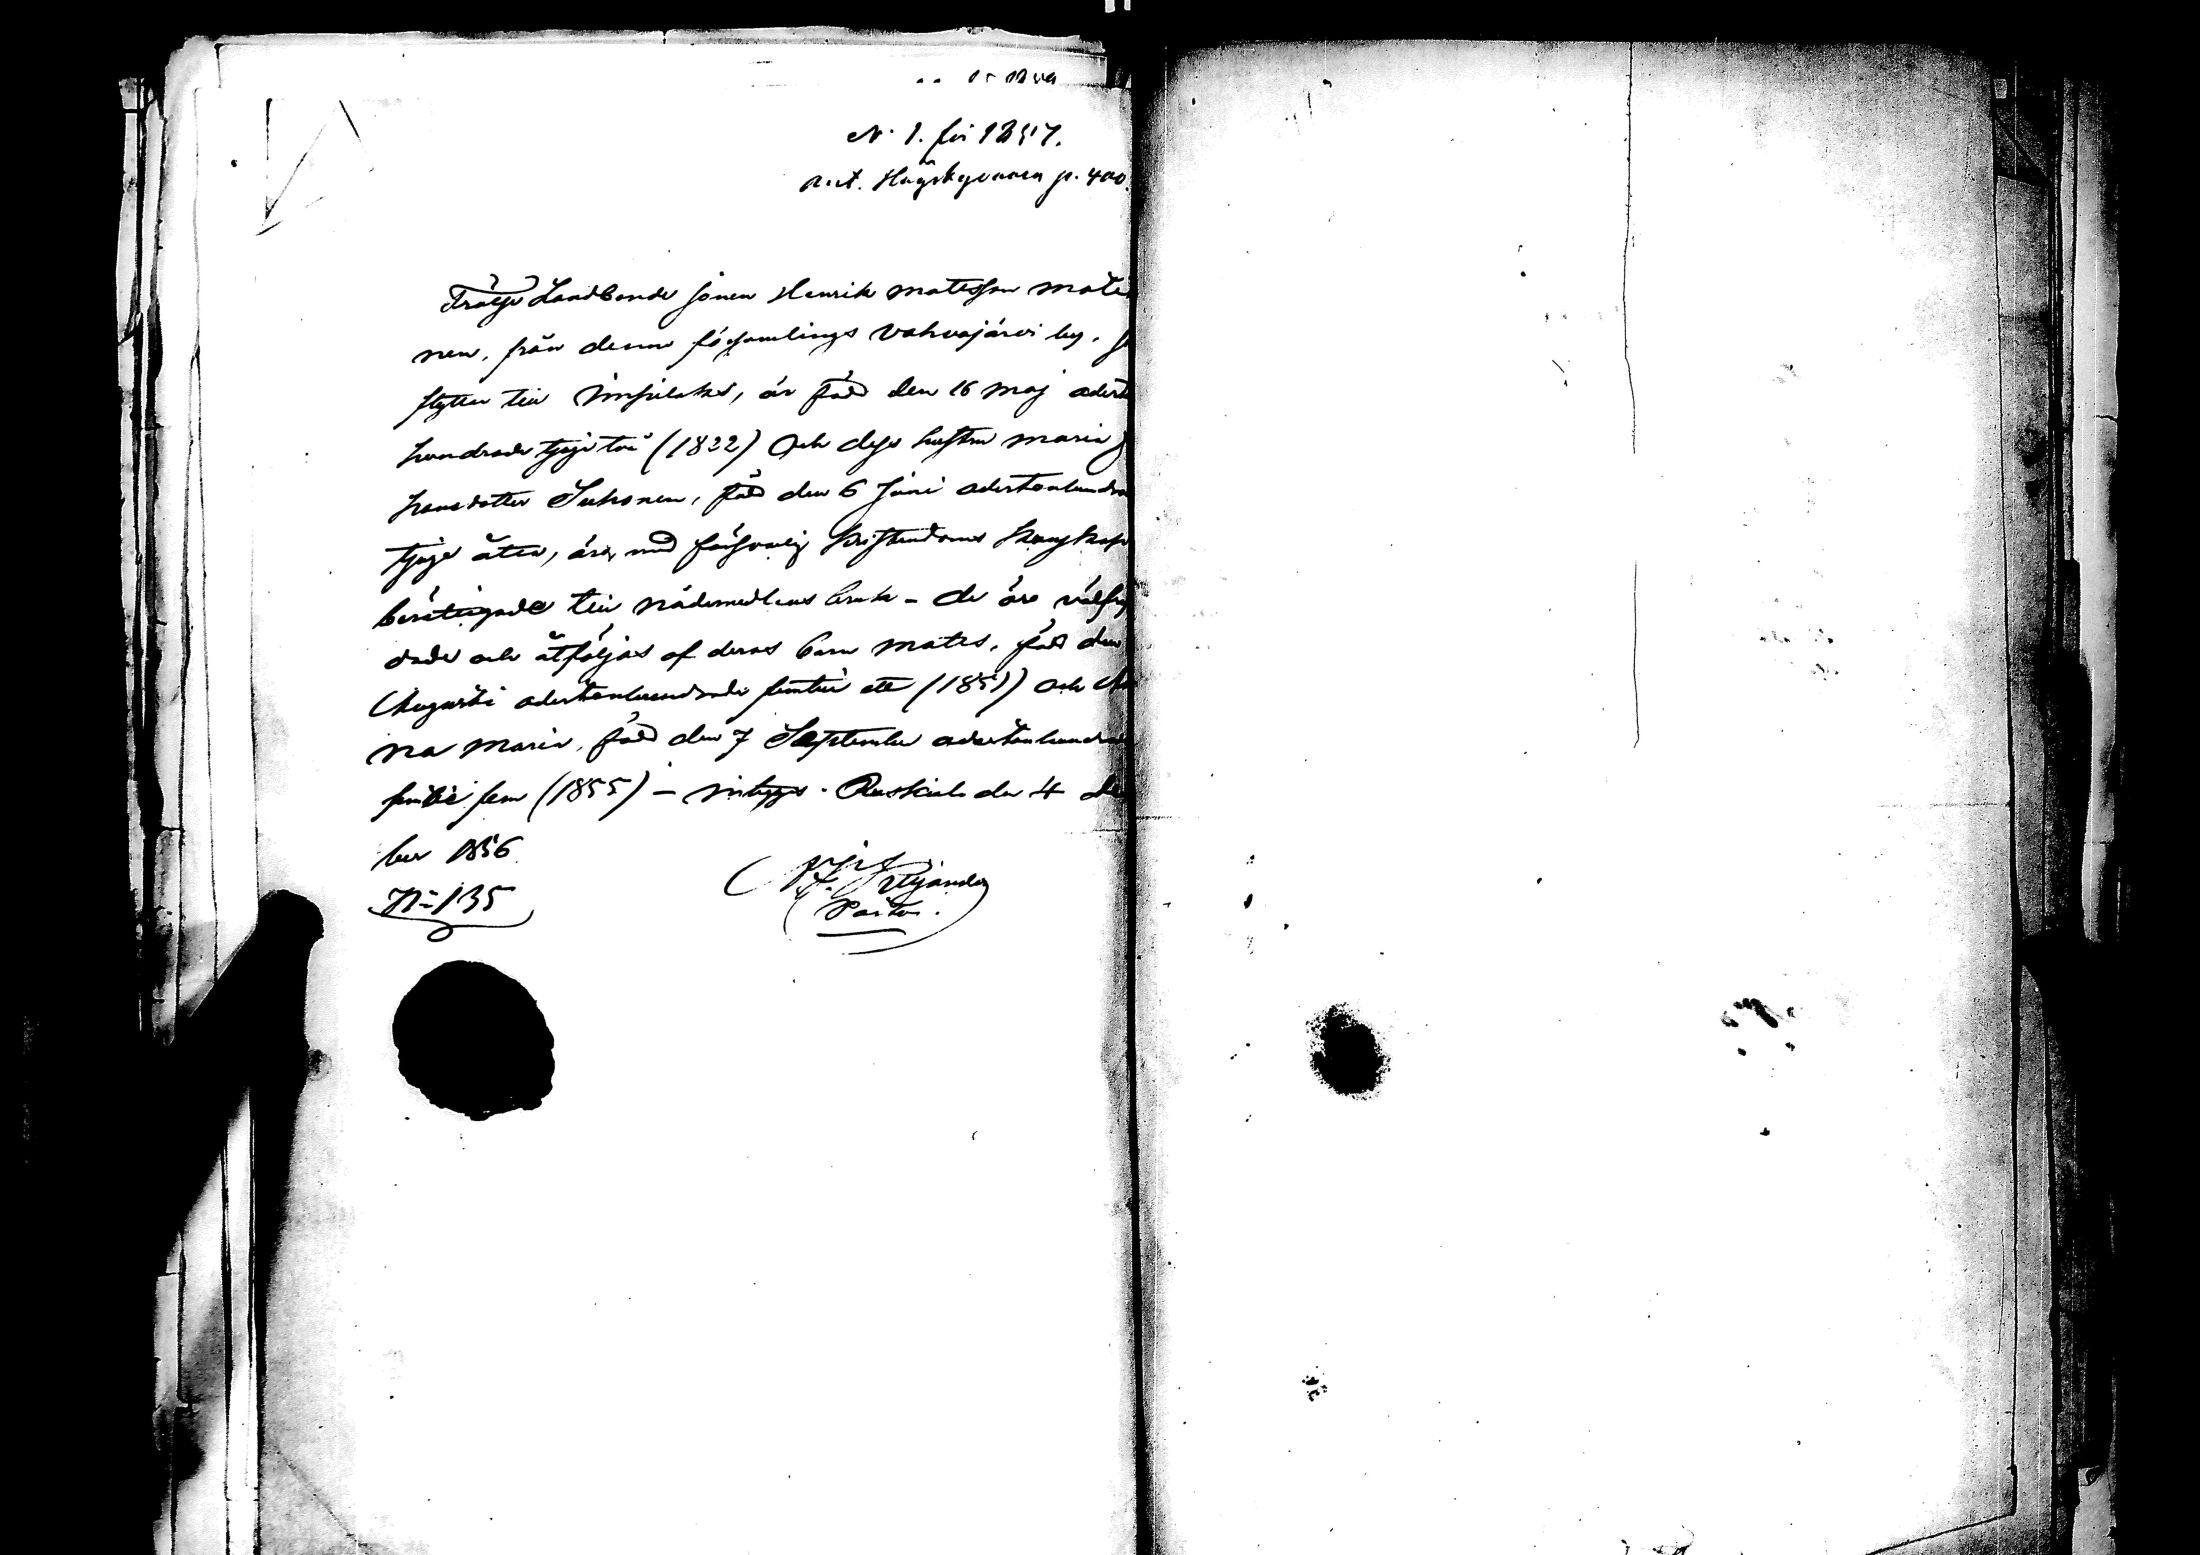 N. 1. för 1857.
p. 400.
Frälse Landbonde sonen Henrik Matsson Mati
nen, från denne församlings Vahvajärvi by,
flyttar till Impilaks, är född den 16 Maj adert
hundrade tjugu två (1822) och dess hustru Maria
hansdotter Suhonen, född den 6 Juni adertonhundra
tjugu åtta, äro, med försvarlig Kristendoms Kunskap
berättigade till nådemedlens bruk – de äro välfräg
dade och åtföljas af deras barn Mats, född den
Augusti adertonhundrade femtio ett (1851) och An
na Maria, född den 7 September adertonhundrade
femtio fem (1855) – intygas. Ruskiala den 4 De
ber 1856
No 135
Pastor.